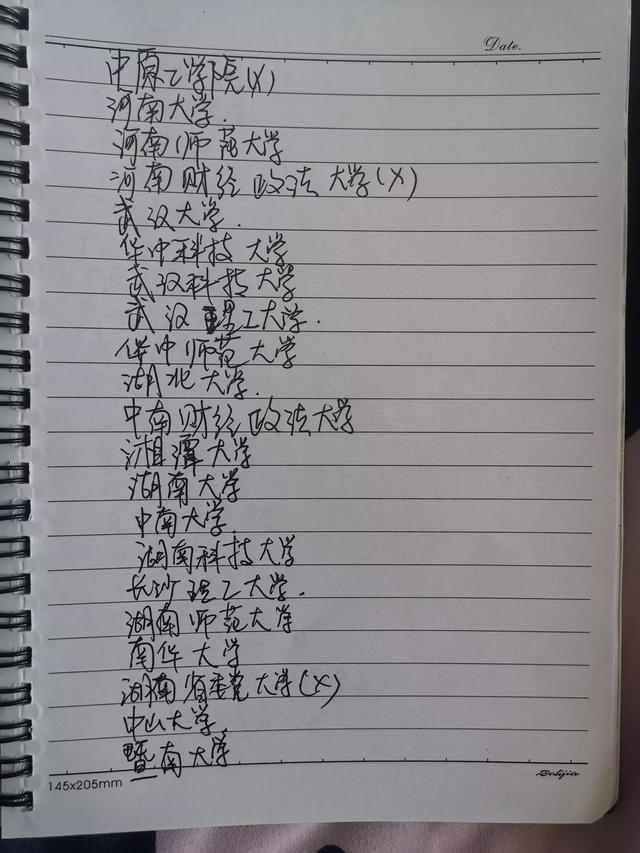 Date.
中原工学院(X)
河南大学.
河南师范大学
河南财经政法大学(X)
武汉大学.
华中科技大学
武汉科技大学
武汉理工大学.
华中师范大学
湖北大学.
中南财经政法大学
湘潭大学
湖南大学
中南大学.
湖南科技大学
长沙理工大学.
湖南师范大学
南华大学
湖南省委党大学(X)
中山大学
暨南大学
145x205mm